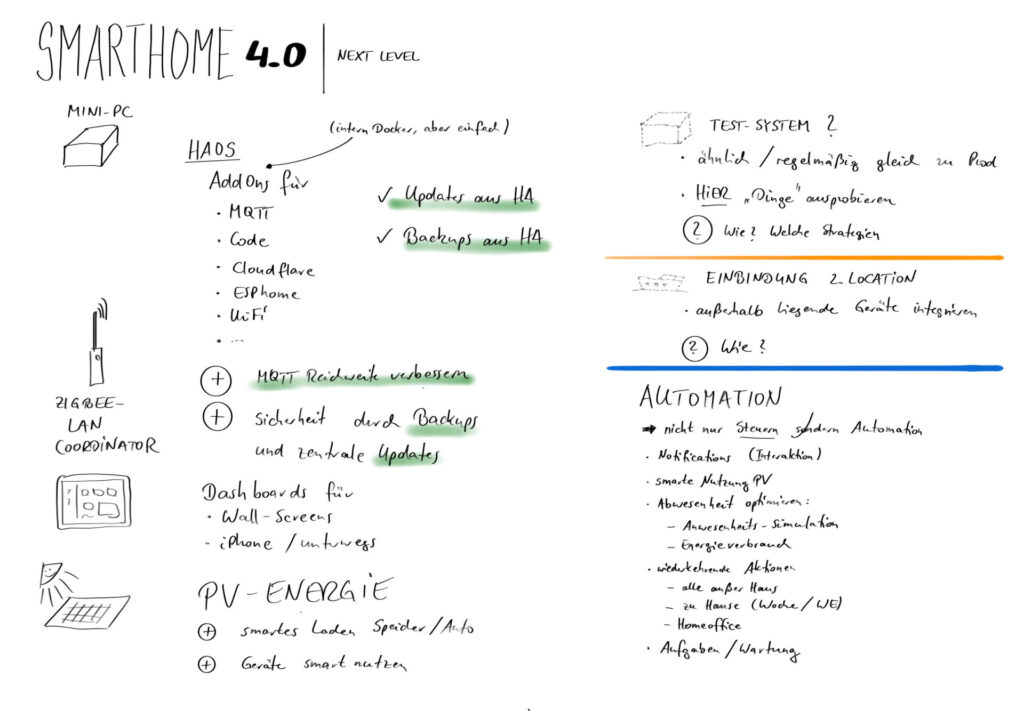 SMARTHOME 4.0 | NEXT LEVEL
MINI-PC
(intern Docker, aber einfach)
HAOS
AddOns für
· MQTT
· Code
· Cloudflare
· ESPhome
· UiFi
· ...
✓ Updates aus HA
✓ Backups aus HA
ZIGBEE-
LAN
COORDINATOR
+ MQTT Reichweite verbessern
+ Sicherheit durch Backups
und zentrale Updates
Dashboards für
· Wall-Screens
· iPhone / unterwegs
PV-ENERGIE
+ smartes Laden Speicher/Auto
+ Geräte smart nutzen
TEST-SYSTEM ?
· ähnlich / regelmäßig gleich zu Prod
· HIER „Dinge" ausprobieren
? Wie? Welche Strategien
EINBINDUNG 2. LOCATION
· außerhalb liegende Geräte integrieren
? Wie?
AUTOMATION
➡ nicht nur Steuern sondern Automation
· Notifications (Interaktion)
· smarte Nutzung PV
· Abwesenheit optimieren:
– Anwesenheits-Simulation
– Energieverbrauch
· wiederkehrende Aktionen
– alle außer Haus
– zu Hause (Woche/WE)
– Homeoffice
· Aufgaben / Wartung